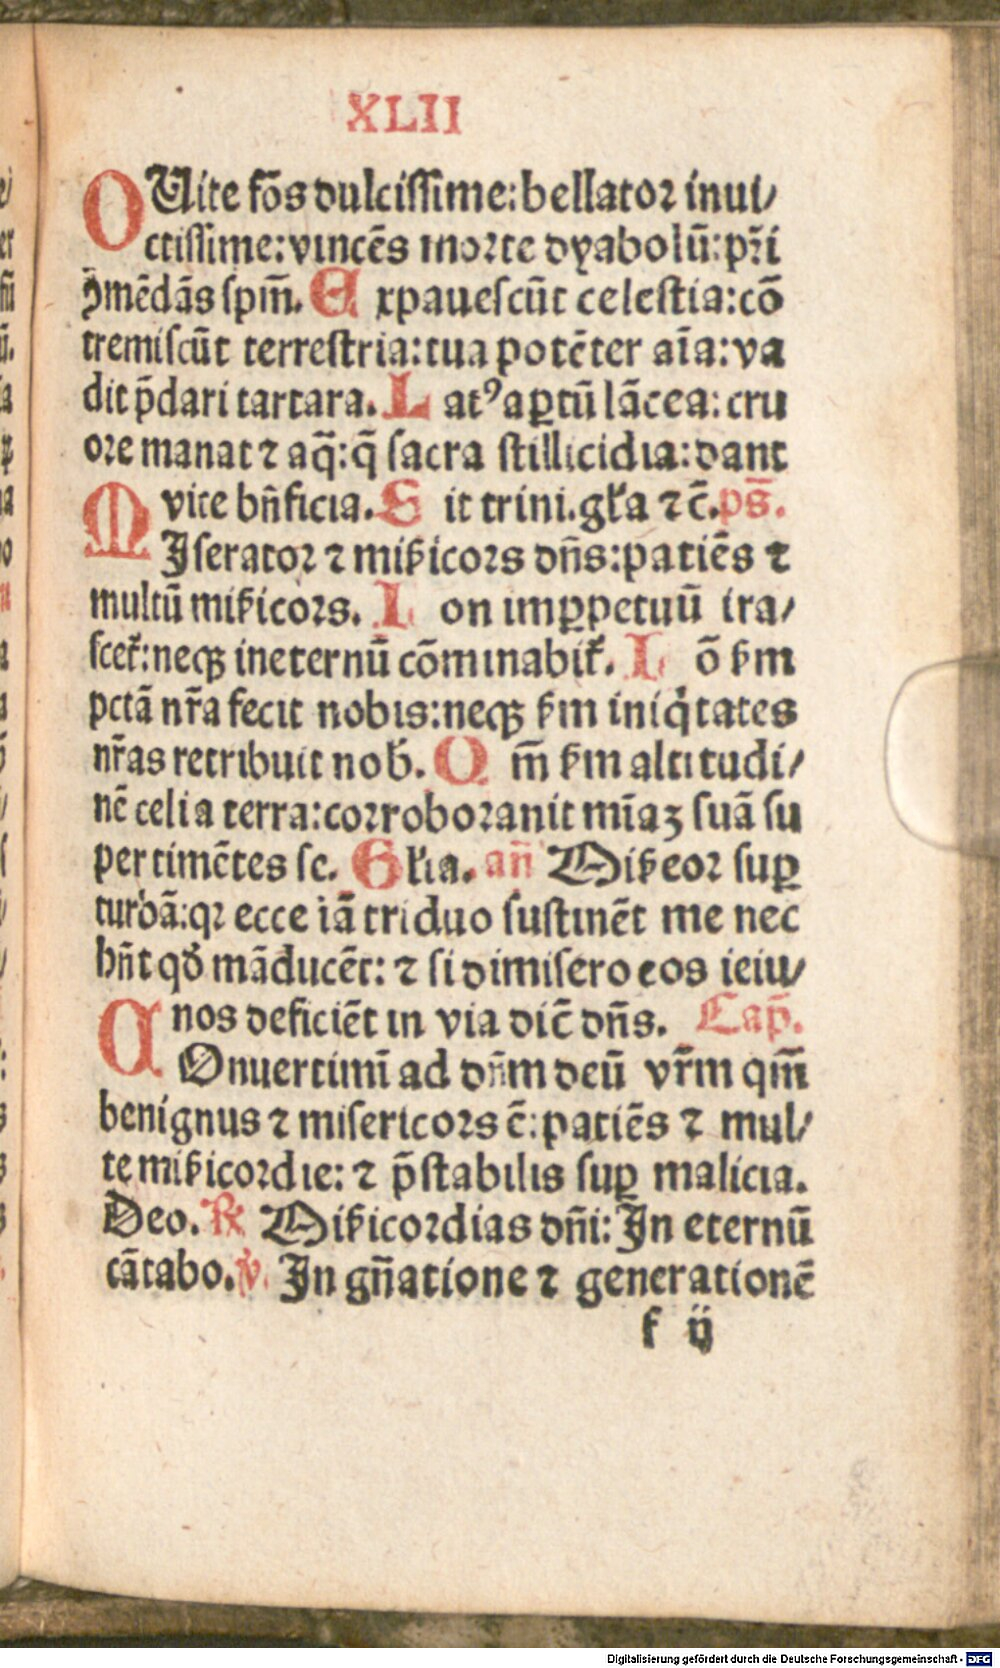 XLII
O Uite fōs dulcissime: bellator inui/
ctissime: vincēs morte dyabolū: pr̄i
ꝯmēdās spm̄. E xpauescūt celestia: cō
tremiscūt terrestria: tua potēter aīa: va
dit p̄dari tartara. L atꝰ apꝑtū lācea: cru
ore manat ⁊ aq̄: q̄ sacra stillicidia: dant
vite bn̄ficia. S it trini. gl̕a ⁊ c̄. ps̄.
M Iserator ⁊ mis̕icors dn̄s: patiēs ⁊
multū mis̕icors. I on imꝑpetuū ira/
scet̕: neqꝫ ineternū cōminabit̕. I ō s̕m
pctā nr̄a fecit nobis: neqꝫ s̕m iniq̇tates
nr̄as retribuit nob̕. Q m̄ s̕m altitudi/
nē celi a terra: corroborauit mīaꝫ suā su
per timētes se. G l̕ia. an̄ Mis̕eor suꝑ
turbā: qꝛ ecce iā triduo sustinēt me nec
hn̄t qd̕ māducēt: ⁊ si dimisero eos ieiu/
nos deficiēt in via dic̄ dn̄s. Cap̄.
C Onuertimī ad dn̄m deū vr̄m qm̄
benignus ⁊ misericors ē: patiēs ⁊ mul/
te mis̕icordie: ⁊ p̄stabilis suꝑ malicia.
Deo. ℟ Mis̕icordias dn̄i: In eternū
cātabo. ℣. In gn̄atione ⁊ generationē
f ij
Digitalisierung gefördert durch die Deutsche Forschungsgemeinschaft - DFG